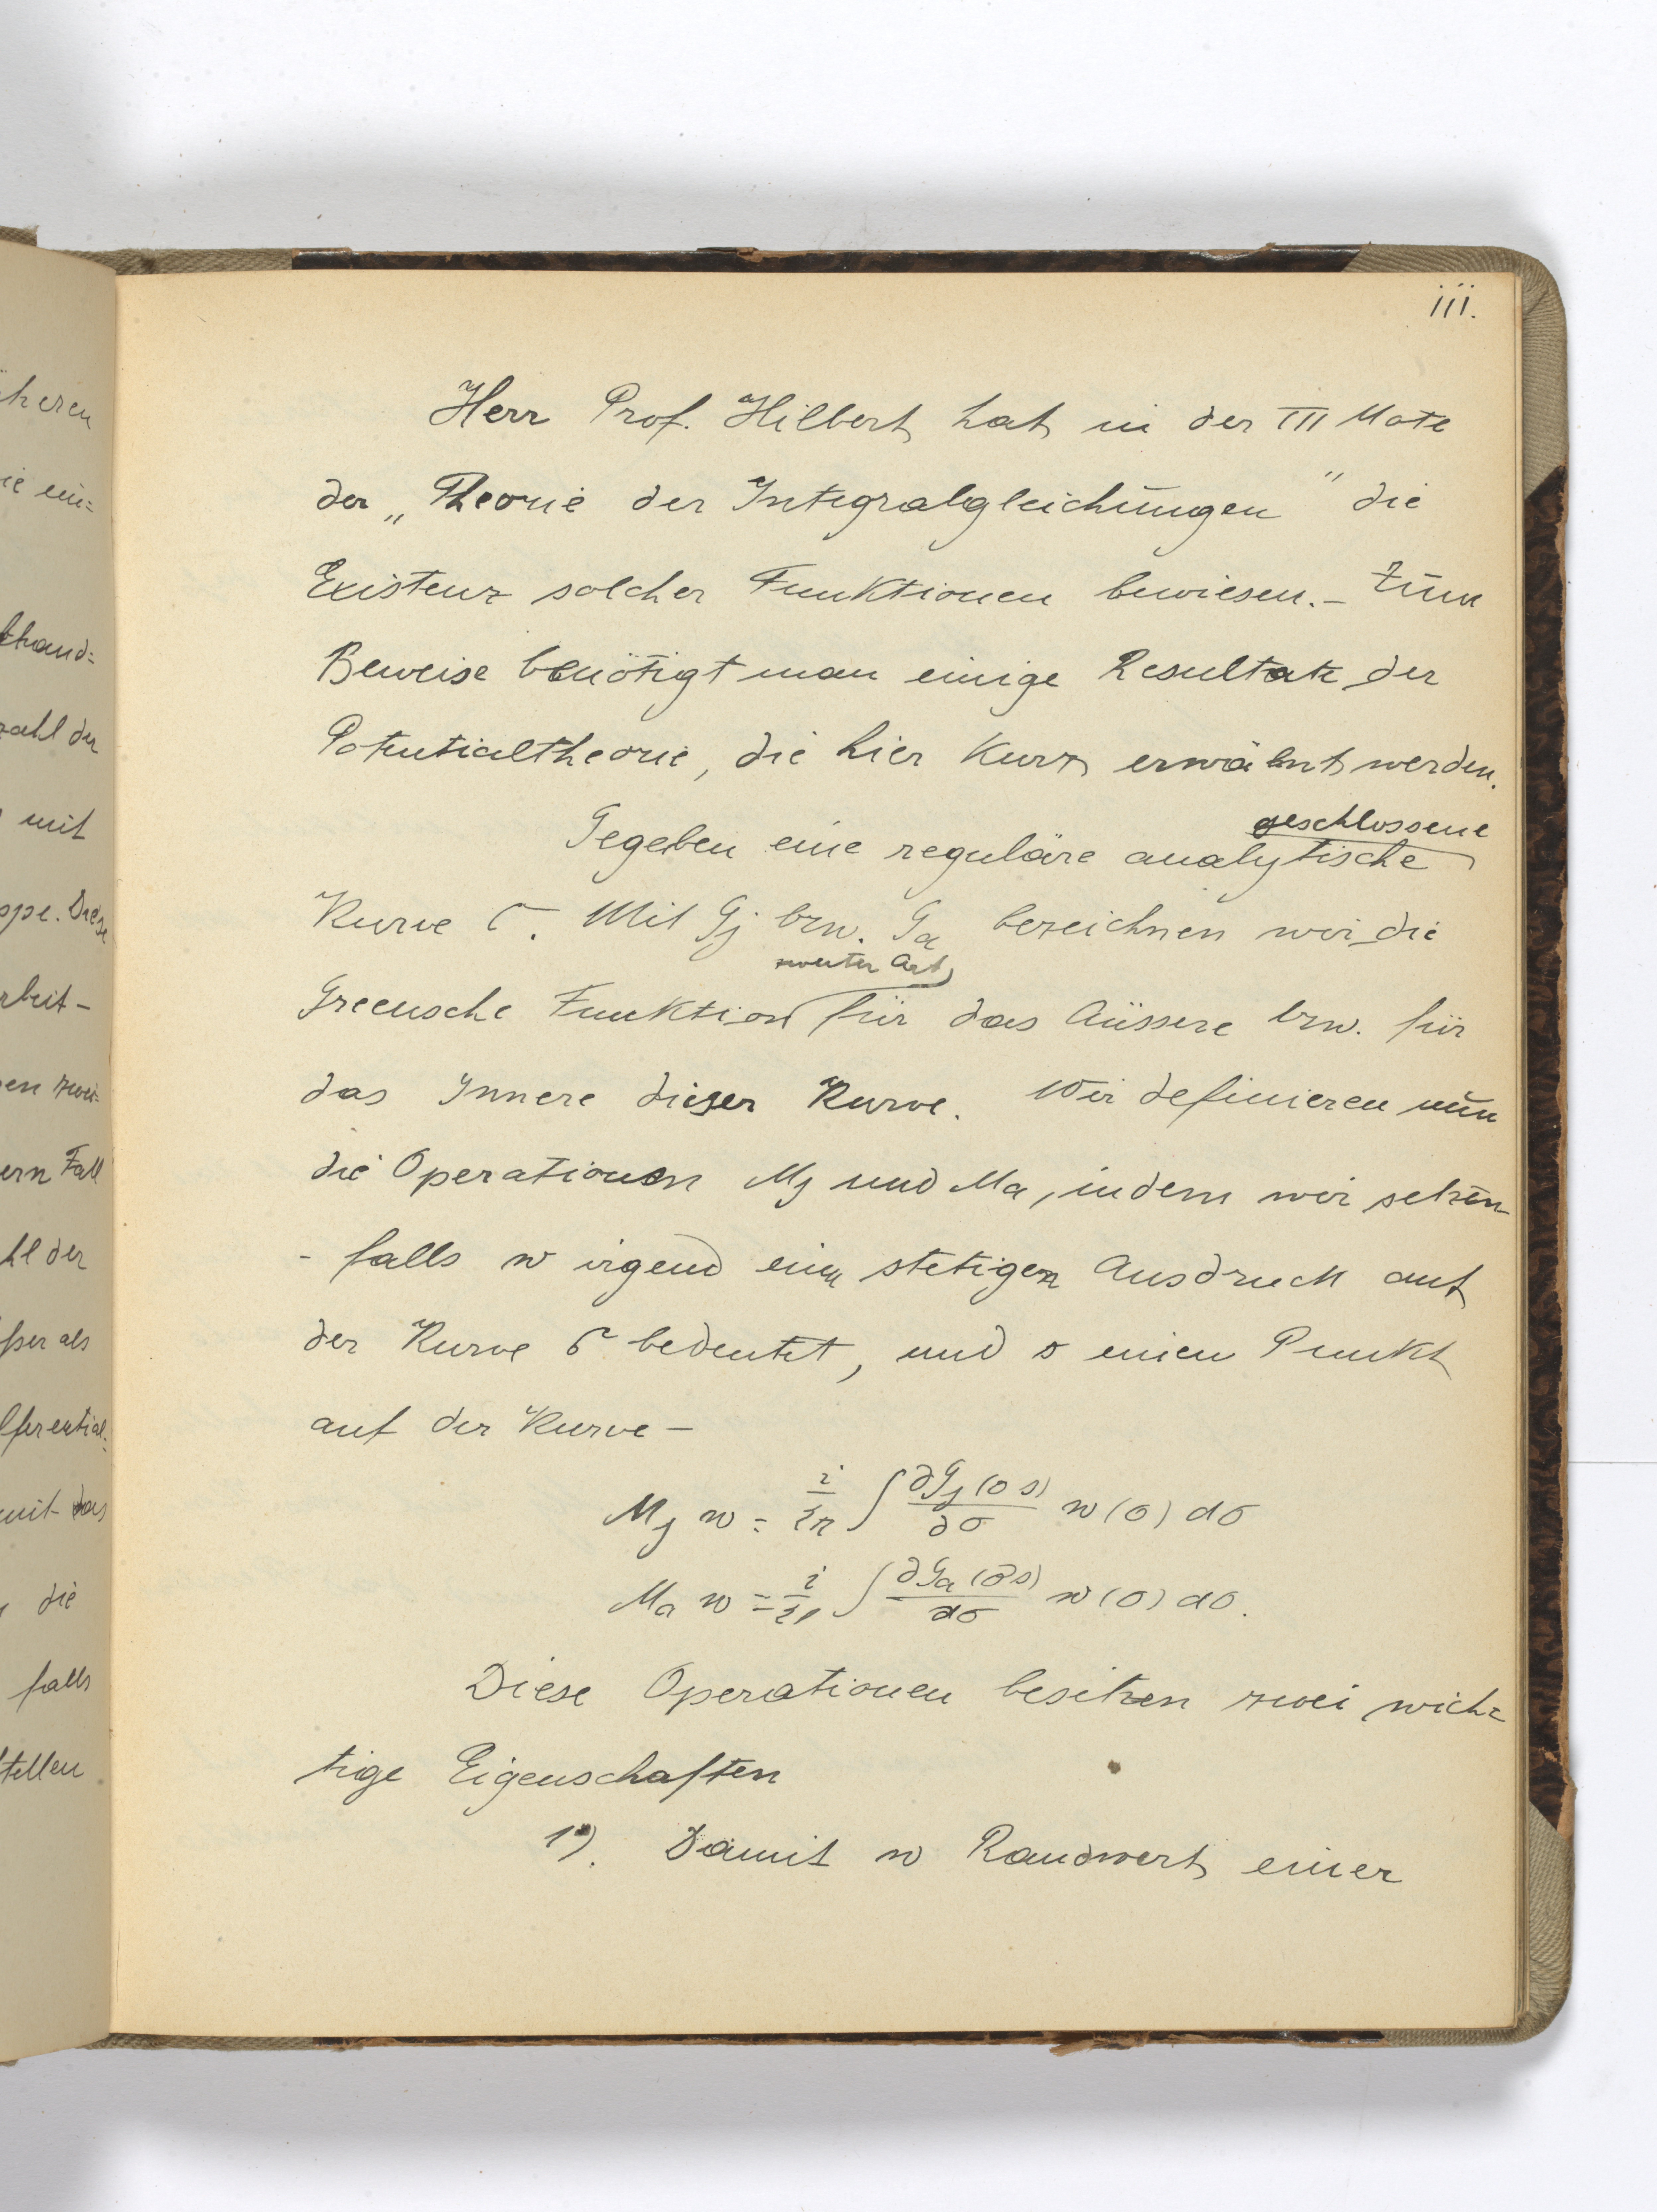 iii.
Herr Prof. Hilbert hat in der III Note
der „Theorie der Integralgleichungen" die
Existenz solcher Funktionen bewiesen. – Zum
Beweise benötigt man einige Resultate der
Potentialtheorie, die hier kurz erwähnt werden.
geschlossene
Gegeben eine reguläre analytische
Kurve C. Mit Gj bzw. Ga bezeichnen wir die
zweiter Art
Greensche Funktion für das Äussere bzw. für
das Innere dieser Kurve. Wir definieren nun
die Operationen Mj und Ma, indem wir setzen
- falls w irgend einen stetigen Ausdruck auf
der Kurve C bedeutet, und s einen Punkt
auf der Kurve –
Mj w = i/2π ∫ ∂Gj(σ s)/∂σ w(σ) dσ
Ma w = i/2π ∫ ∂Ga(σ s)/dσ w(σ) dσ.
Diese Operationen besitzen zwei wich=
tige Eigenschaften
1). Damit w Randwert einer
heren
ie ein=
hand=
zahl der
mit
ppe. Diese
rbeit-
en zwei=
ern Fall
hl der
ßer als
fferential=
mit das
die
falls
tellen